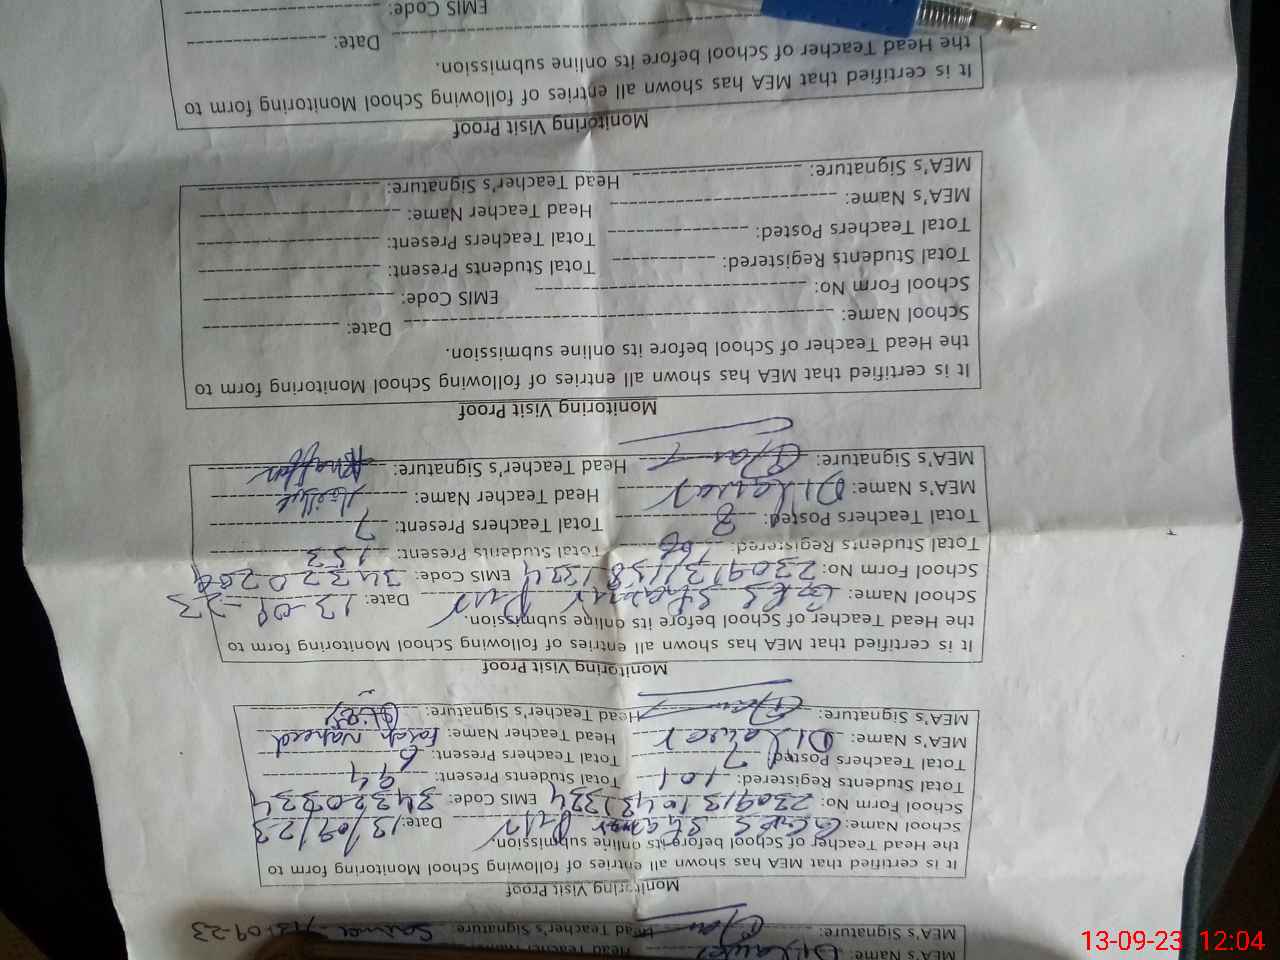 MEA's Name: Dilawar
MEA's Signature: Head Teacher's Signature: Saima 13-09-23
Monitoring Visit Proof
It is certified that MEA has shown all entries of following School Monitoring form to
the Head Teacher of School before its online submission.
School Name: GGPS Date: 13/09/23
School Form No: EMIS Code:
Total Students Registered: 101 Total Students Present: 94
Total Teachers Posted: 7 Total Teachers Present: 6
MEA's Name: Dilawar Head Teacher Name: Farah Naheed
MEA's Signature: Head Teacher's Signature:
Monitoring Visit Proof
It is certified that MEA has shown all entries of following School Monitoring form to
the Head Teacher of School before its online submission.
School Name: Date: 13-09-23
School Form No: EMIS Code:
Total Students Registered: 166 Total Students Present: 153
Total Teachers Posted: 8 Total Teachers Present: 7
MEA's Name: Dilawar Head Teacher Name:
MEA's Signature: Head Teacher's Signature:
Monitoring Visit Proof
It is certified that MEA has shown all entries of following School Monitoring form to
the Head Teacher of School before its online submission.
School Name: Date:
School Form No: EMIS Code:
Total Students Registered: Total Students Present:
Total Teachers Posted: Total Teachers Present:
MEA's Name: Head Teacher Name:
MEA's Signature: Head Teacher's Signature:
Monitoring Visit Proof
It is certified that MEA has shown all entries of following School Monitoring form to
the Head Teacher of School before its online submission.
Date:
EMIS Code:
13-09-23 12:04